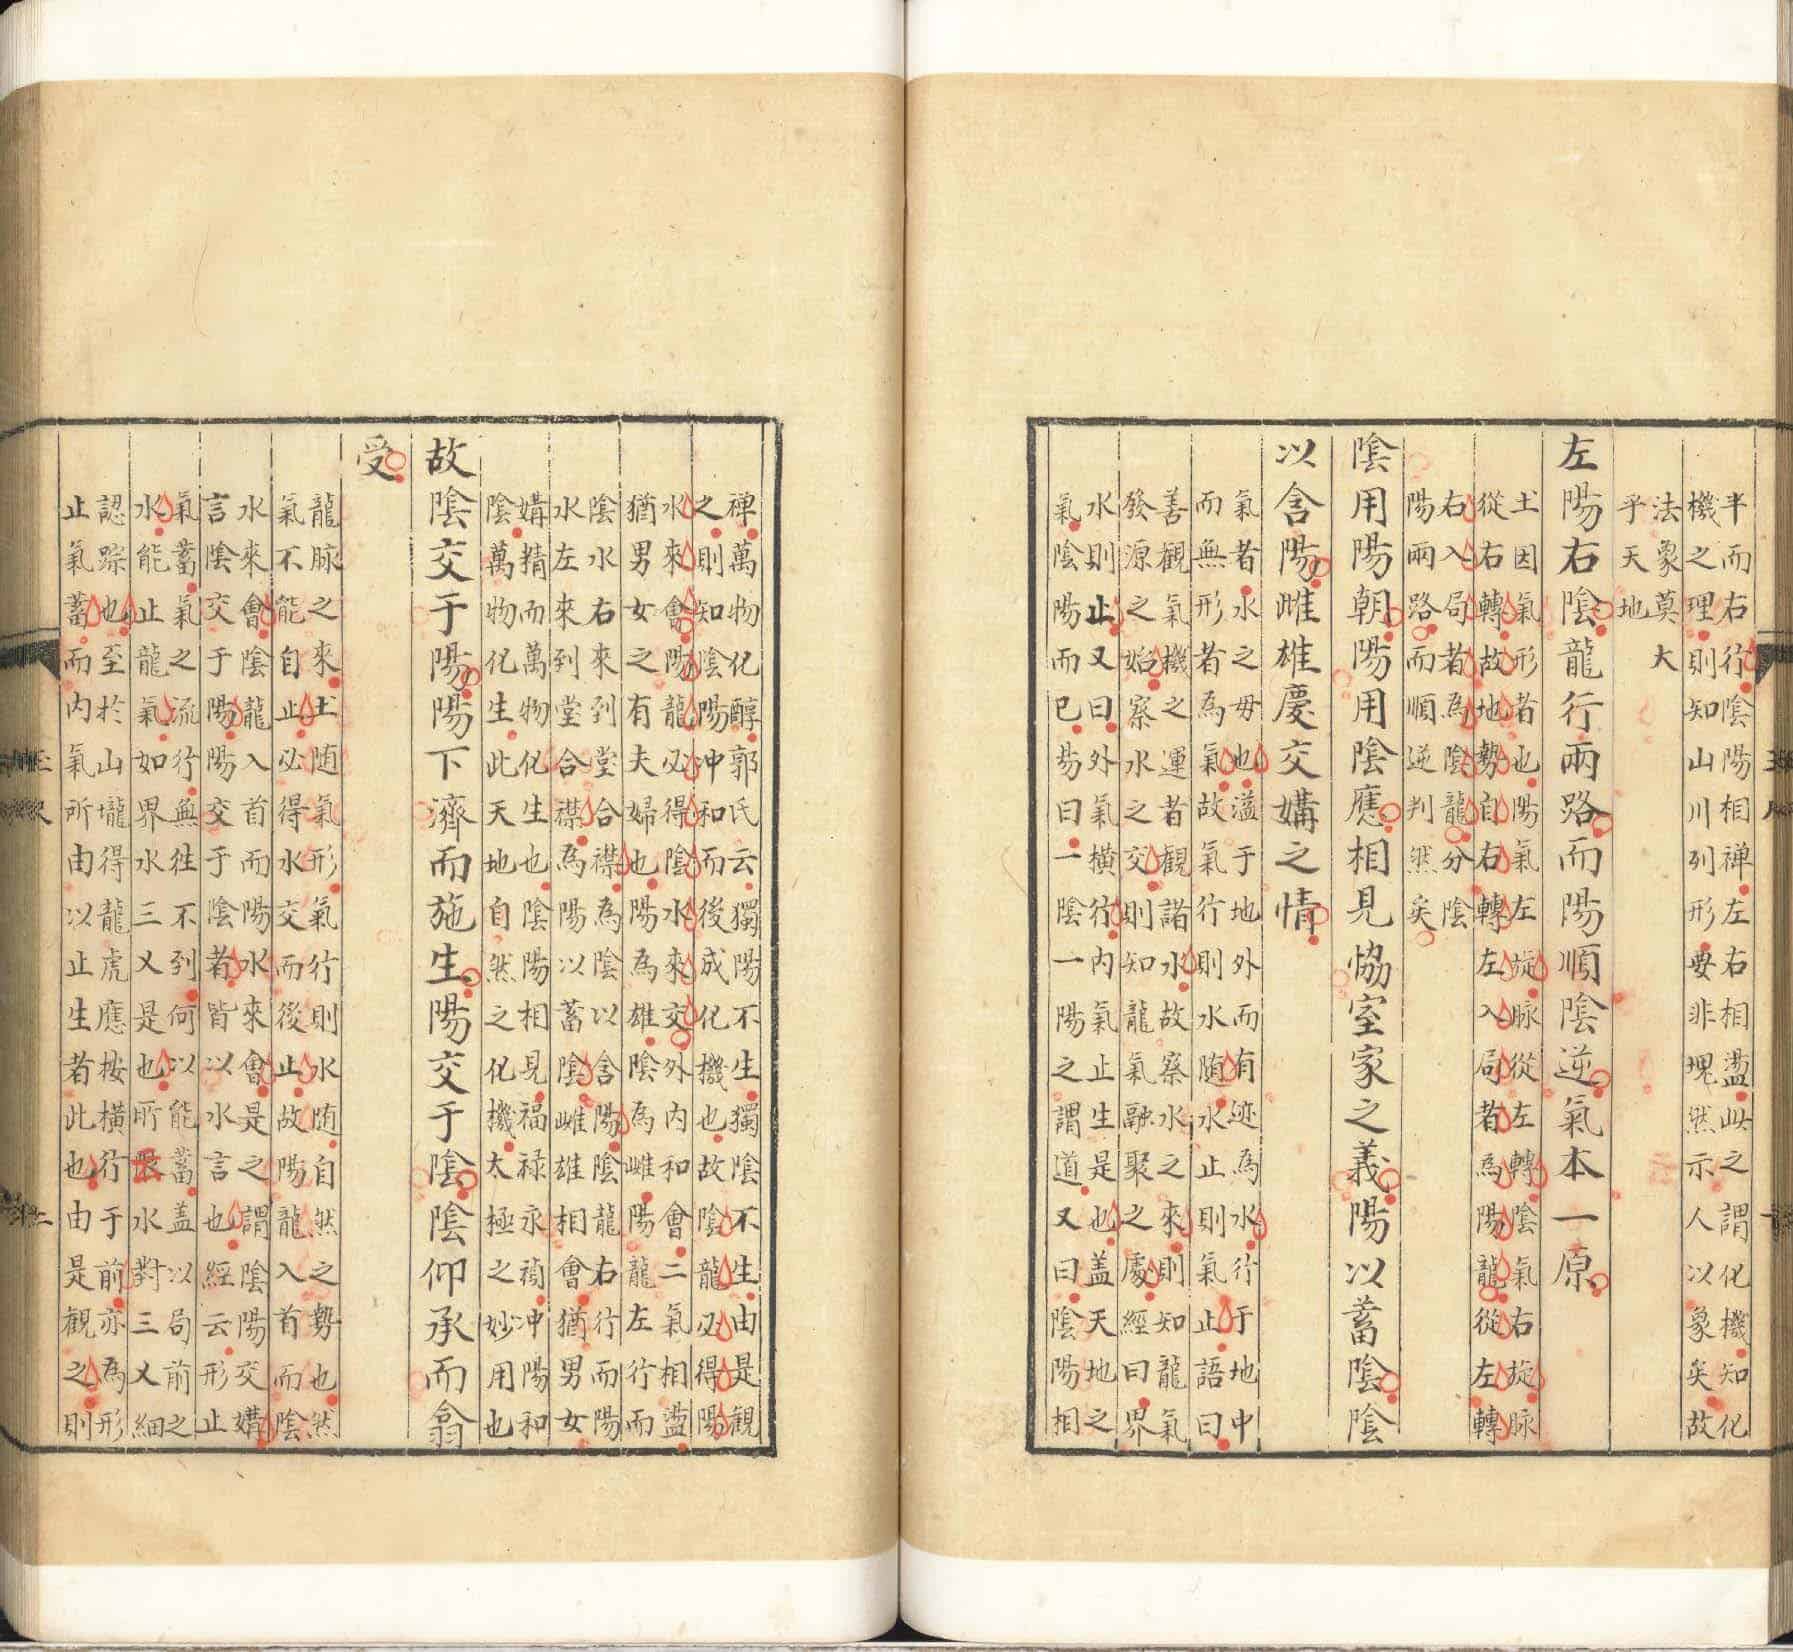 半而右行陰陽相禅左右相盪此之謂化機知化
機之理則知山川列形要非塊然示人以象矣故
法象莫大
乎天地
左陽右陰龍行兩路而陽順陰逆氣本一原
土因氣形者也陽氣左旋脉從左轉陰氣右旋脉
從右轉故地勢自右轉左入局者為陽龍從左轉
右入局者為陰龍分陰
陽兩路而順逆判然矣
陰用陽朝陽用陰應相見恊室家之義陽以蓄陰陰
以含陽雌雄慶交媾之情
氣者水之母也溢于地外而有迹為水行于地中
而無形者為氣故氣行則水随水止則氣止語曰
善觀氣機之運者觀諸水故察水之來則知龍氣
發源之始察水之交則知龍氣融聚之處經曰界
水則止又曰外氣橫行内氣止生是也盖天地之
氣陰陽而已昜曰一陰一陽之謂道又曰陰陽相
禅萬物化醇郭氏云獨陽不生獨陰不生由是觀
之則知陰陽冲和而後成化機也故陰龍必得陽
水來會陽龍必得陰水來交外内和會二氣相盪
猶男女之有夫婦也陽為雄陰為雌陽龍左行而
陰水右來到堂合襟為陰以含陽陰龍右行而陽
水左來到堂合襟為陽以蓄陰雌雄相會猶男女
媾精而萬物化生也陰陽相見福禄永禎冲陽和
陰萬物化生此天地自然之化機太極之妙用也
故陰交于陽陽下濟而施生陽交于陰陰仰承而翕
受
龍脉之來土随氣形氣行則水随自然之勢也然
氣不能自止必得水交而後止故陽龍入首而陰
水來會陰龍入首而陽水來會是之謂陰陽交媾
言陰交于陽陽交于陰者皆以水言也經云形止
氣蓄氣之流行無徃不到何以能蓄盖以局前之
水能止龍氣如界水三叉是也所水對三叉細
認踪也至於山壠得龍虎應按橫行于前亦為形
止氣蓄而内氣所由以止生者此也由是觀之則